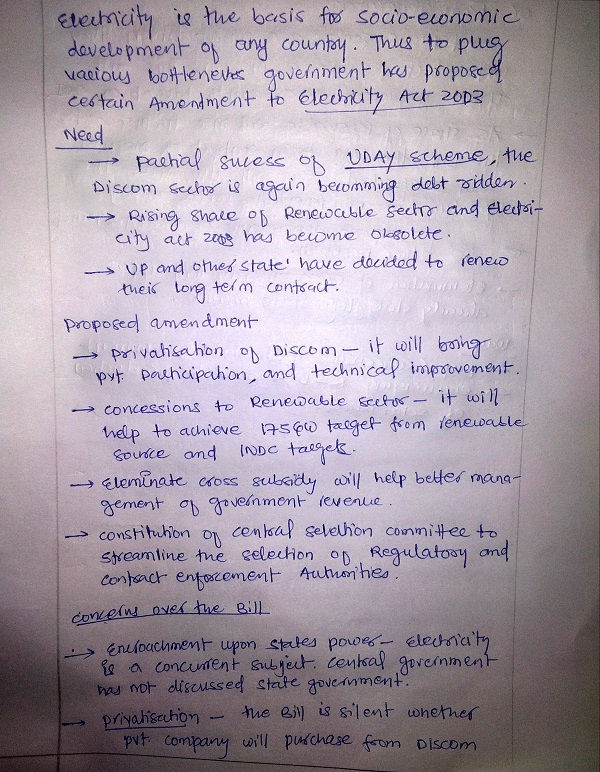 Electricity is the basis for socio-economic
development of any country. Thus to plug
various bottlenecks government has proposed
certain Amendment to Electricity Act 2003
Need
→ partial sucess of UDAY scheme, the
Discom sector is again becomming debt ridden.
→ Rising share of Renewable sector and Electri-
city act 2003 has become obsolete.
→ UP and other state' have decided to renew
their long term contract.
Proposed amendment
→ privatisation of Discom – it will bring
pvt. participation, and technical improvement.
→ concessions to Renewable sector – it will
help to achieve 175 GW target from renewable
source and INDC targets.
→ Eleminate cross subsidy will help better mana-
gement of government revenue.
→ constitution of central selection committee to
streamline the selection of Regulatory and
contract enforcement Authorities.
concerns over the Bill
→ Encroachment upon states power – Electricity
is a concurrent subject. central government
has not discussed state government.
→ privatisation – the Bill is silent whether
pvt. company will purchase from DISCOM